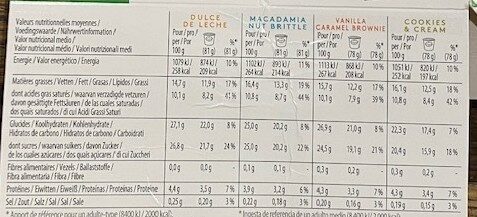 DULCE DE LECHE MACADAMIA NUT BRITTLE VANILLA CARAMEL BROWNIE COOKIES & CREAM
Valeurs nutritionnelles moyennes /
Voedingswaarde / Nährwertinformation /
Valor nutricional médio / Valori nutrizionali medi
Pour / pro / per / Por 100 g (81 g) %* (81 g) Pour / pro / per / Por 100 g (81 g) %* (81 g) Pour / pro / per / Por 100 g (78 g) %* (78 g) Pour / pro / per / Por 100 g (78 g) %* (78 g)
Energie / Valor energético / Energia 1079 kJ / 258 kcal 874 kJ / 209 kcal 10 % 1102 kJ / 264 kcal 893 kJ / 214 kcal 11 % 1113 kJ / 267 kcal 868 kJ / 208 kcal 10 % 1051 kJ / 252 kcal 820 kJ / 197 kcal 10 %
Matières grasses / Vetten / Fett / Grasas / Lípidos / Grassi 14,7 g 11,9 g 17 % 16,4 g 13,3 g 19 % 15,7 g 12,2 g 17 % 16,1 g 12,5 g 18 %
dont acides gras saturés / waarvan verzadigde vetzuren /
davon gesättigte Fettsäuren / de las cuales saturadas /
dos quais saturados / di cui Acidi Grassi Saturi 10,1 g 8,2 g 41 % 10,8 g 8,7 g 44 % 10,1 g 7,9 g 39 % 10,8 g 8,4 g 42 %
Glucides / Koolhydraten / Kohlenhydrate /
Hidratos de carbono / Carboidrati 27,1 g 22,0 g 8 % 25,0 g 20,2 g 8 % 26,9 g 21,0 g 8 % 22,3 g 17,4 g 7 %
dont sucres / waarvan suikers / davon Zucker /
de los cuales azúcares / dos quais açúcares / di cui Zuccheri 26,8 g 21,7 g 24 % 25,0 g 20,2 g 22 % 24,5 g 19,1 g 21 % 20,4 g 15,9 g 18 %
Fibres alimentaires / Vezels / Ballaststoffe /
Fibra alimentaria / Fibra / Fibre 0,0 g 0,0 g 0,1 g 0,1 g 0,3 g 0,2 g 0,3 g 0,2 g
Protéines / Eiwitten / Eiweiß / Proteínas / Proteínas / Proteine 4,4 g 3,5 g 7 % 3,9 g 3,2 g 6 % 4,3 g 3,3 g 7 % 4,3 g 3,4 g 7 %
Sel / Zout / Salz / Sal / Sal / Sale 0,25 g 0,20 g 3 % 0,22 g 0,18 g 3 % 0,20 g 0,16 g 3 % 0,19 g 0,15 g 3 %
* Apport de référence pour un adulte-type (8400 kJ / 2000 kcal). *Ingesta de referencia de un adulto medio (8400 kJ / 2000 kcal).